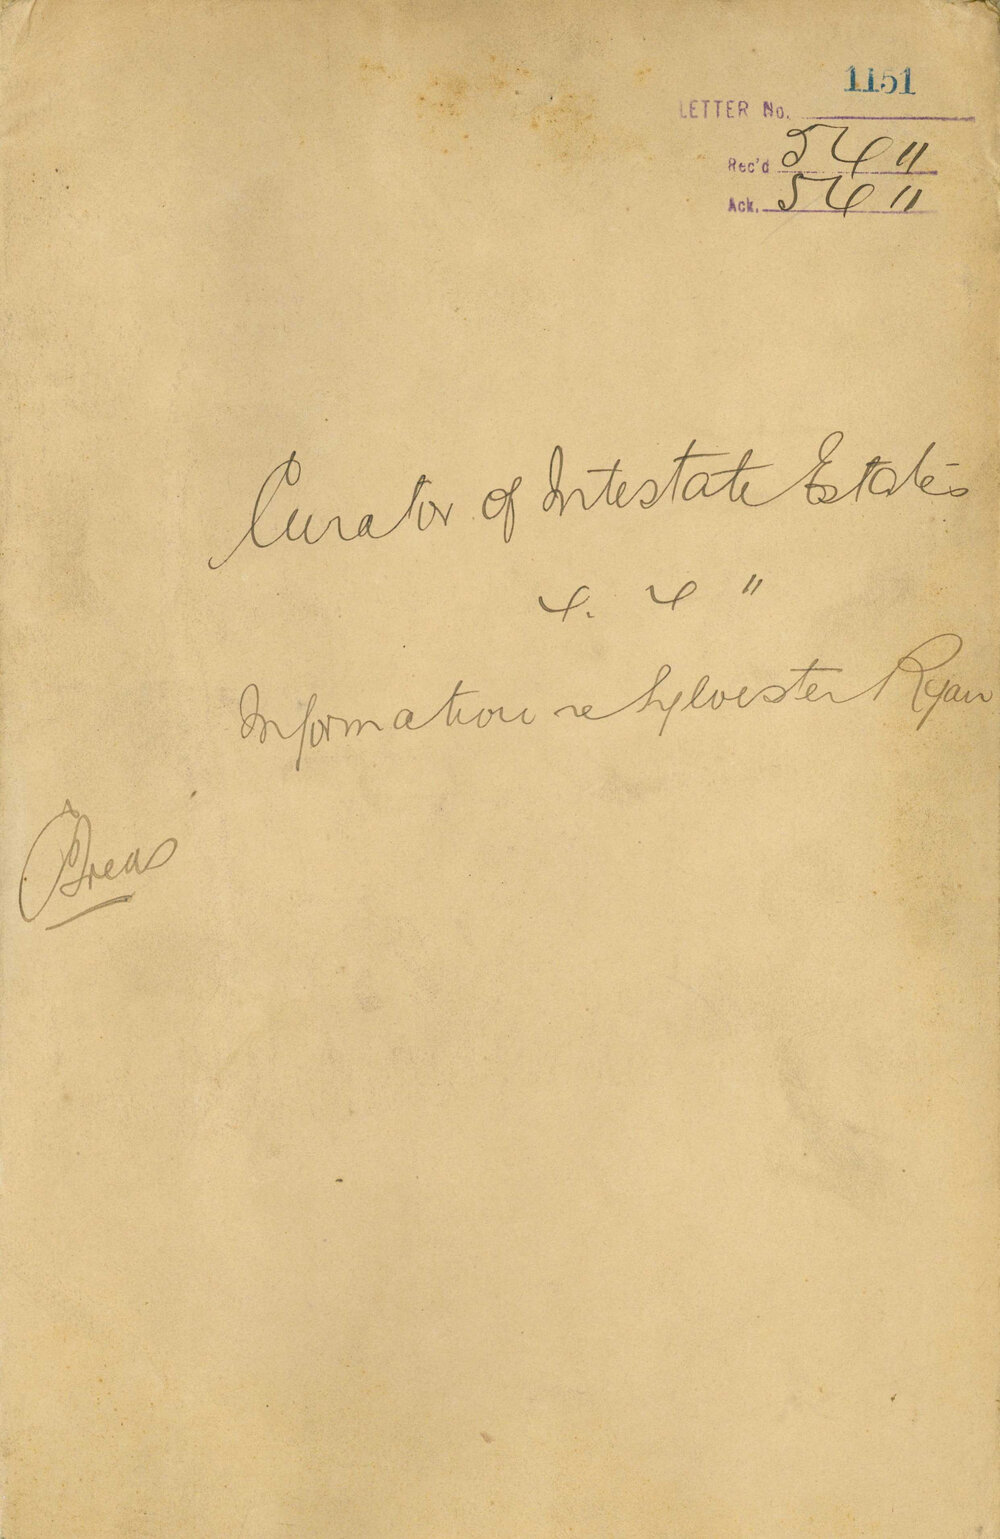 1151
LETTER No.
Rec'd 5 4 11
Ack. 5 4 11
Curator of Intestate Estates
4. 4 11
Information re Sylvester Ryan